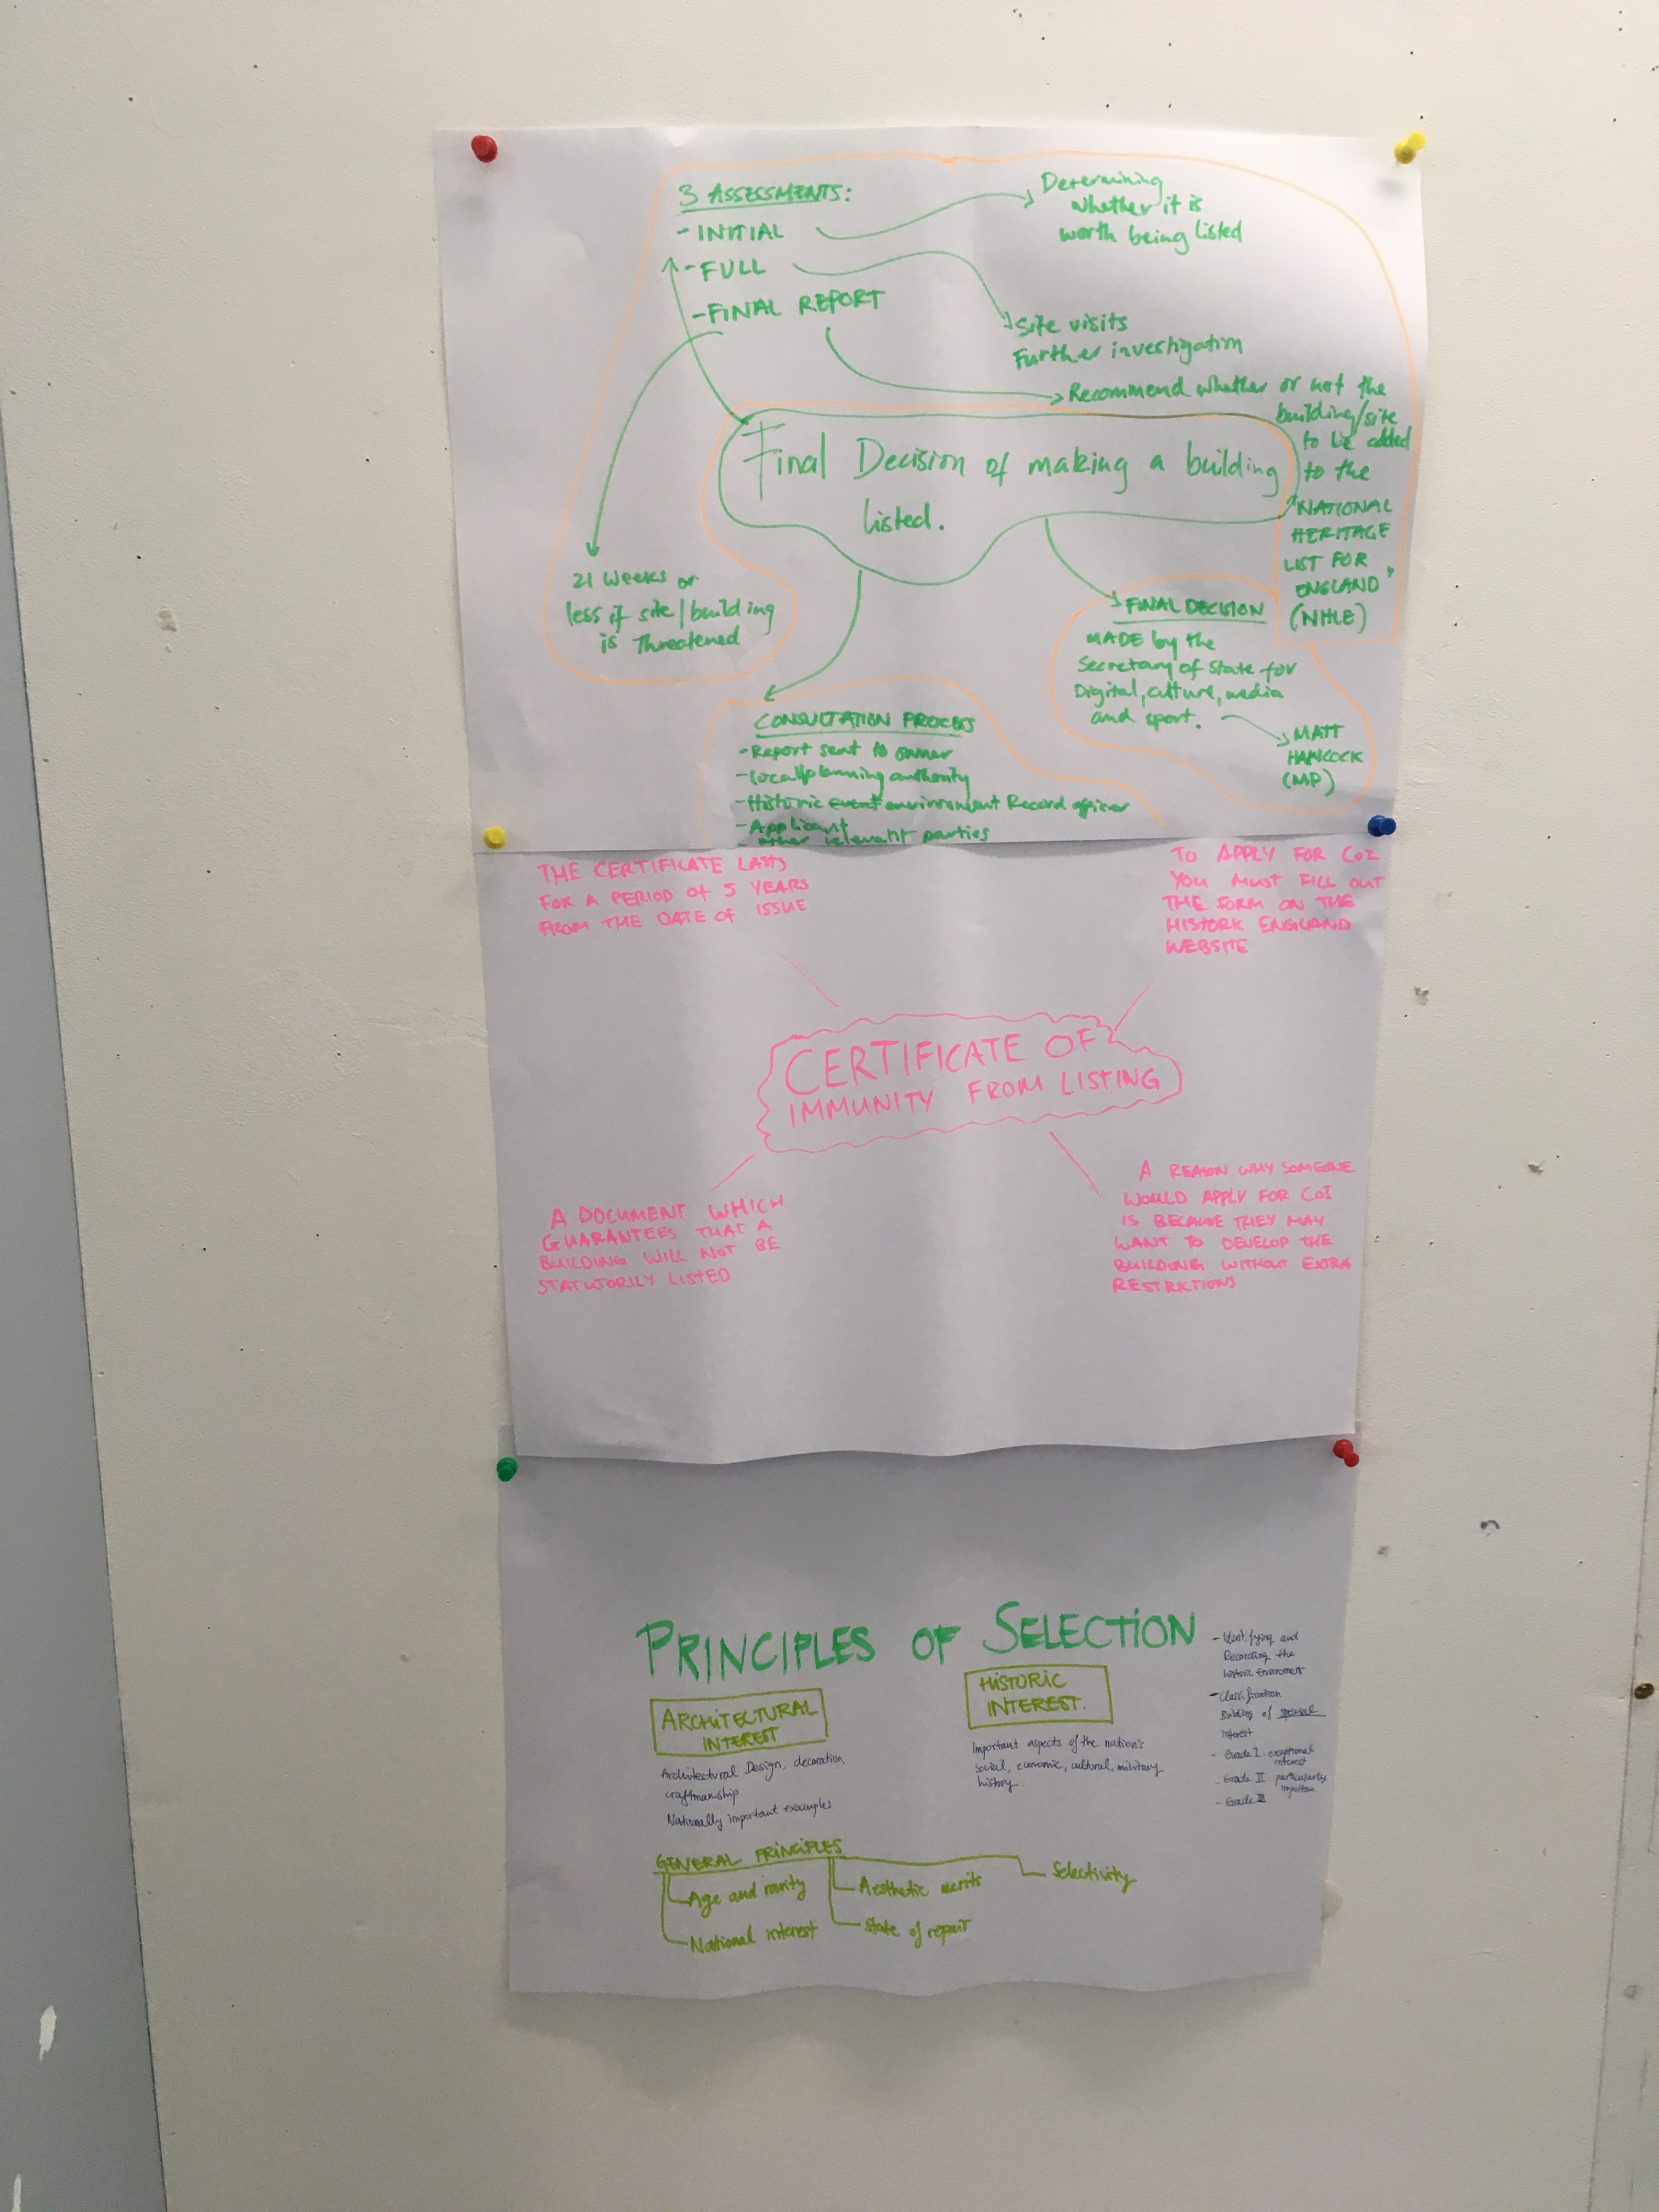 3 ASSESSMENTS:
- INITIAL
- FULL
- FINAL REPORT
Determining
whether it is
worth being listed
Site visits
Further investigation
Recommend whether or not the
building/site
to be added
to the
"NATIONAL
HERITAGE
LIST FOR
ENGLAND"
(NHLE)
Final Decision of making a building
listed.
21 weeks or
less if site/building
is threatened
FINAL DECISION
MADE by the
Secretary of State for
Digital, culture, media
and sport.
MATT
HANCOCK
(MP)
CONSULTATION PROCESS
- Report sent to owner
- Local planning authority
- Historic event environment Record officer
- Applicant
- other relevant parties
THE CERTIFICATE LASTS
FOR A PERIOD OF 5 YEARS
FROM THE DATE OF ISSUE
TO APPLY FOR COI
YOU MUST FILL OUT
THE FORM ON THE
HISTORIC ENGLAND
WEBSITE
CERTIFICATE OF
IMMUNITY FROM LISTING
A DOCUMENT WHICH
GUARANTEES THAT A
BUILDING WILL NOT BE
STATUTORILY LISTED
A REASON WHY SOMEONE
WOULD APPLY FOR COI
IS BECAUSE THEY MAY
WANT TO DEVELOP THE
BUILDING WITHOUT EXTRA
RESTRICTIONS
PRINCIPLES OF SELECTION
ARCHITECTURAL
INTEREST
Architectural Design, decoration,
craftmanship
Nationally important examples
HISTORIC
INTEREST.
Important aspects of the nation's
social, economic, cultural, military
history
- Identifying and
Recording the
historic
- Classification
Building of special
interest
- Grade I exceptional
interest
- Grade II particularly
important
- Grade III
GENERAL PRINCIPLES
Age and rarity
National interest
Aesthetic merits
State of repair
Selectivity